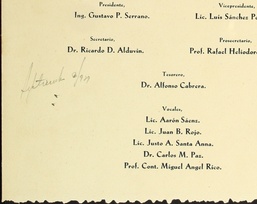 Presidente,
Ing. Gustavo P. Serrano.
Vicepresidente,
Lic. Luis Sánchez
Secretario,
Dr. Ricardo D. Alduvín.
Prosecretario,
Prof. Rafael Heliodor
Tesorero,
Dr. Alfonso Cabrera.
Vocales,
Lic. Aarón Sáenz.
Lic. Juan B. Rojo.
Lic. Justo A. Santa Anna.
Dr. Carlos M. Paz.
Prof. Cont. Miguel Angel Rico.